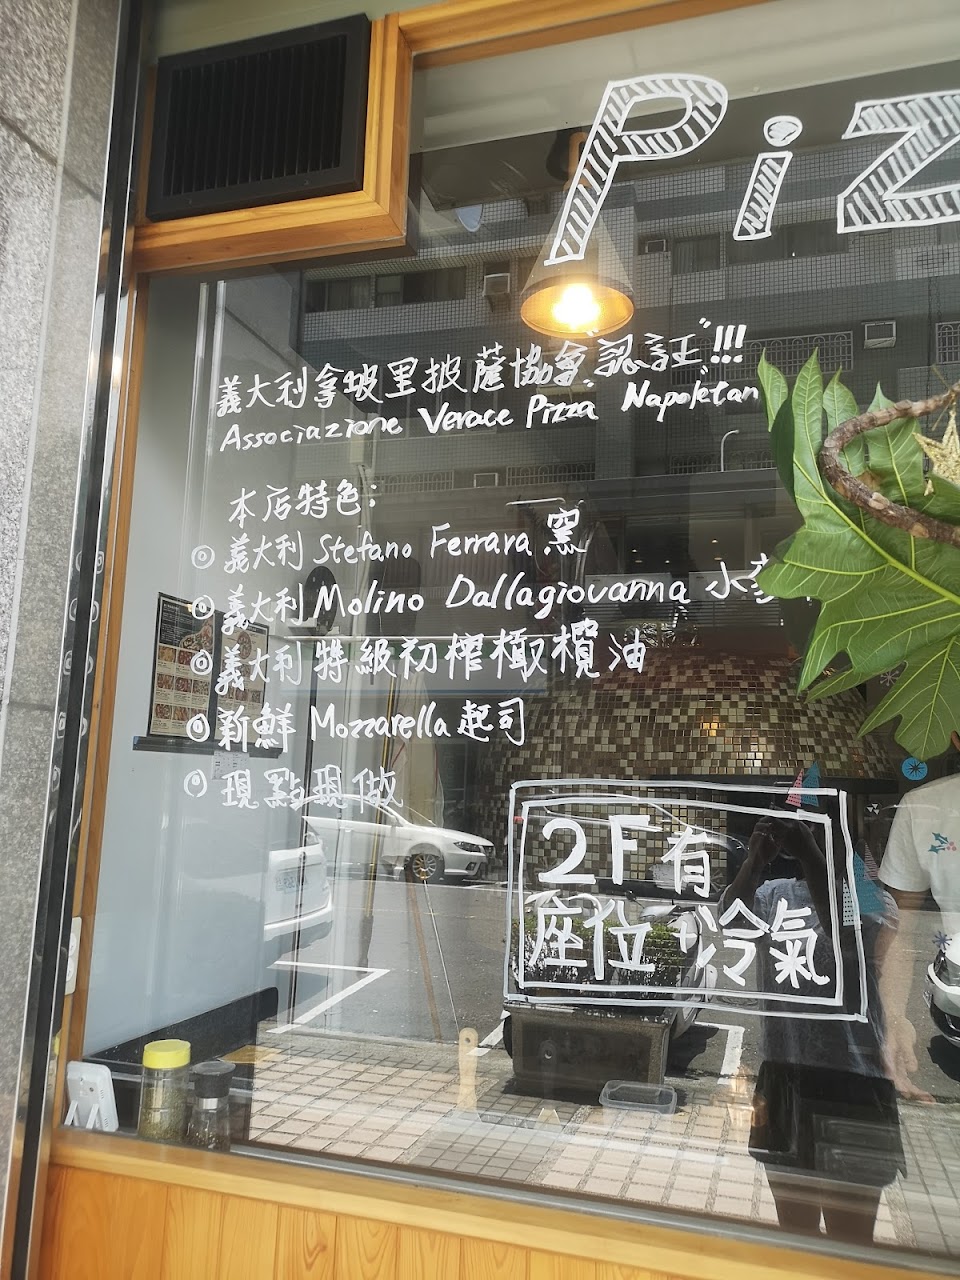 Piz
義大利拿坡里披薩協會"認証"!!!
Associazione Verace Pizza Napoletan
本店特色:
◎義大利 Stefano Ferrara 窯
◎義大利 Molino Dallagiovanna 小麥
◎義大利 特級初榨橄欖油
◎新鮮 Mozzarella 起司
◎現點現做
2F有
座位+冷氣